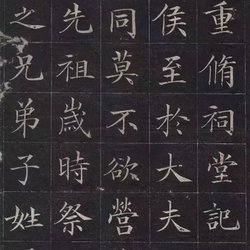 重脩祠堂記
侯至於大夫
同莫不欲營
先祖歲時祭
之兄弟子姓